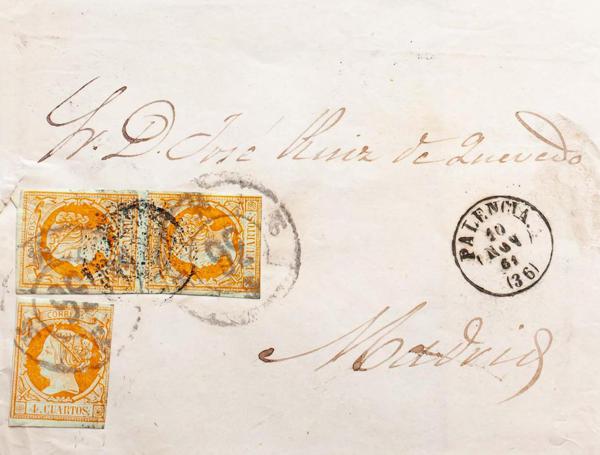 Sr. D. José Ruiz de Quevedo
PALENCIA
10
NOV
61
(36)
Madrid
CORREOS
4 CUARTOS